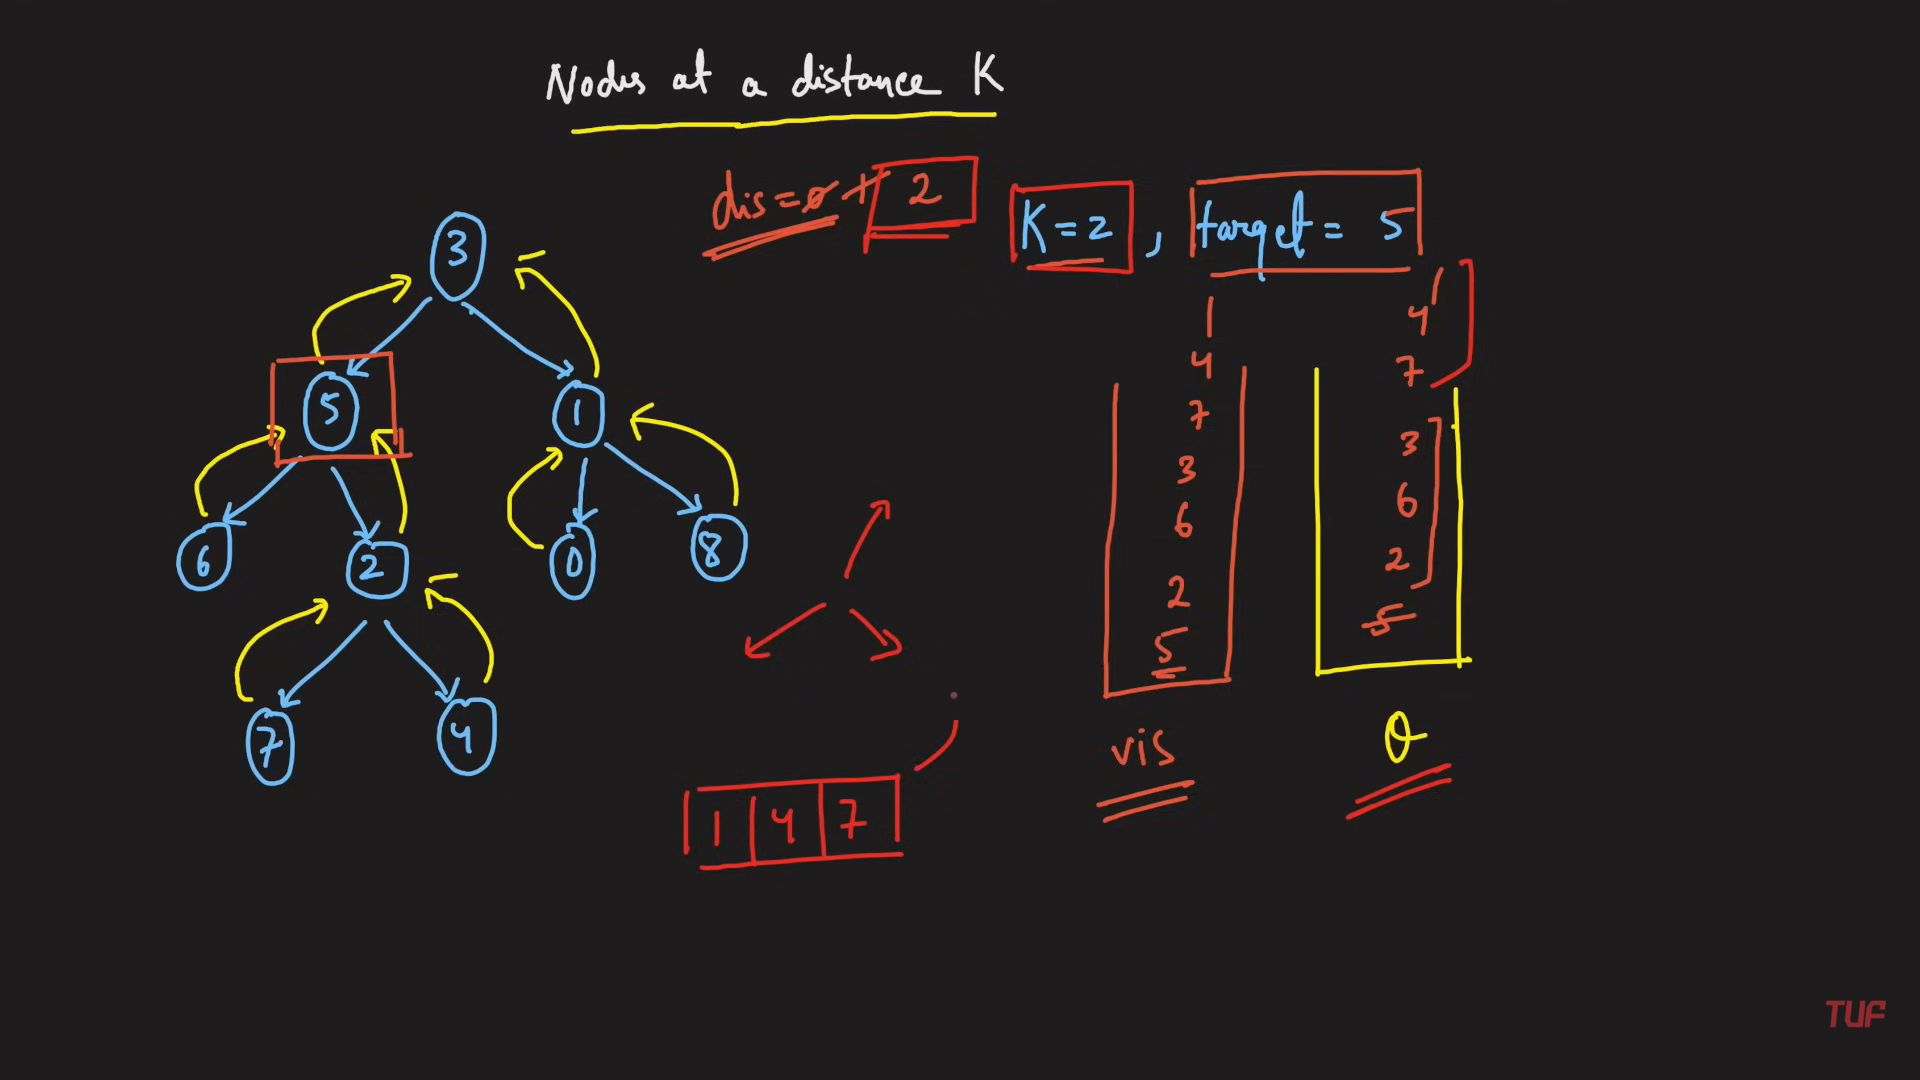 Nodes at a distance K
dis = 0 1 2
K = 2 , target = 5
3
5
1
6
2
0
8
7
4
1
4
7
3
6
2
5
vis
1
4
7
3
6
2
5
Q
1 4 7
TUF